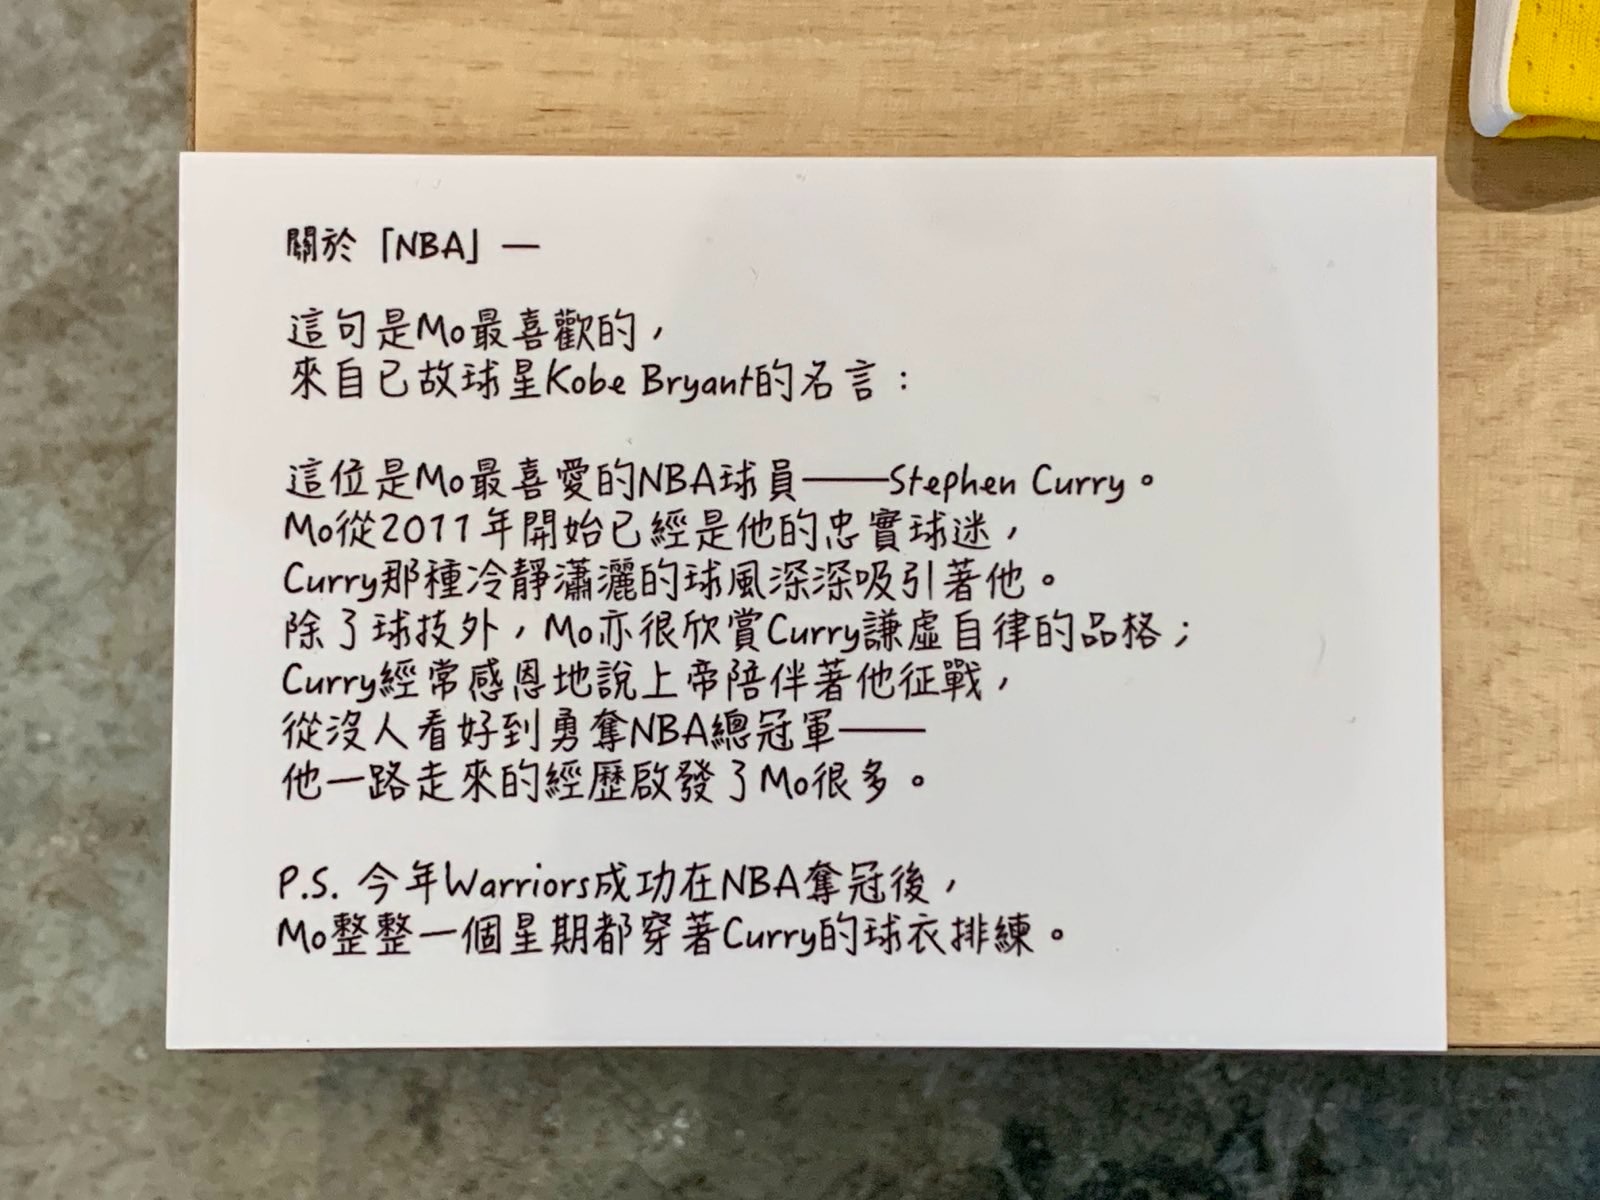 關於「NBA」—
這句是Mo最喜歡的，
來自已故球星Kobe Bryant的名言：
這位是Mo最喜愛的NBA球員——Stephen Curry。
Mo從2011年開始已經是他的忠實球迷，
Curry那種冷靜瀟灑的球風深深吸引著他。
除了球技外，Mo亦很欣賞Curry謙虛自律的品格；
Curry經常感恩地說上帝陪伴著他征戰，
從沒人看好到勇奪NBA總冠軍——
他一路走來的經歷啟發了Mo很多。
P.S. 今年Warriors成功在NBA奪冠後，
Mo整整一個星期都穿著Curry的球衣排練。